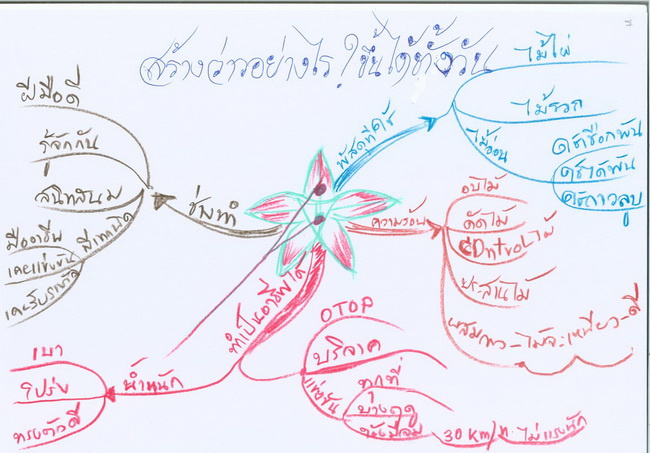 สร้างว่าวอย่างไร? ขึ้นได้ทั้งวัน
พัสดุที่ใช้
ไม้ไผ่
ไม้รวก
ไม้อ่อน
ใช้เชือกพัน
ใช้ด้ายพัน
ใช้กาวลูบ
ความร้อน
อบไม้
ดัดไม้
Controlไม้
ประสานไม้
ผสมกาว-ไม้จะเหนียว-ดี
ทำเป็นอาชีพได้
OTOP
บริจาค
แข่งขัน
ทุกที่
บางฤดู
30 Km/ช. ไม่แรงนัก
น้ำหนัก
เบา
โปร่ง
ทรงตัวดี
ช่างทำ
ฝีมือดี
รู้จักกัน
สนิทสนม
มีเทคนิค
มืออาชีพ
เคยแข่งขัน